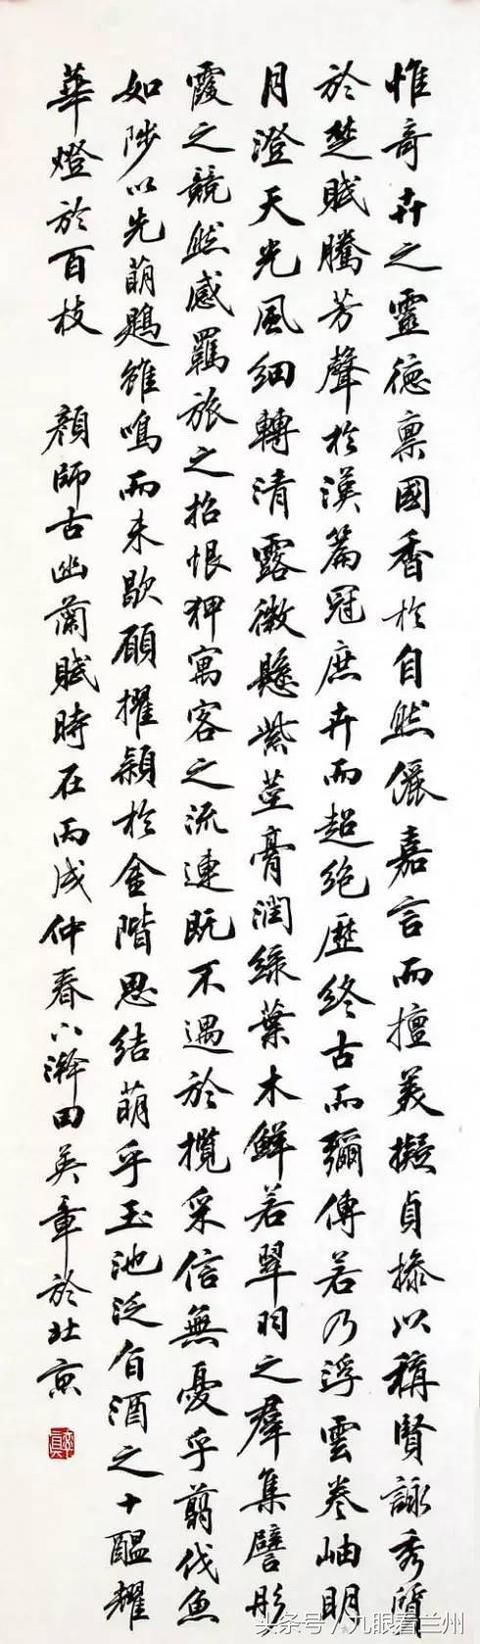 惟奇卉之靈德稟國香於自然儷嘉言而擅美擬貞操以稱賢詠秀質
於楚賦騰芳聲於漢篇冠庶卉而超絶歷終古而彌傳若乃浮雲卷岫明
月澄天光風細轉清露微懸紫莖膏潤綠葉水鮮若翠羽之羣集譬彤
霞之競然感羈旅之招恨狎寓客之流連既不遇於攬采信無憂乎翦伐魚
如陟以先萌鶗雖鳴而未歇願擢穎於金階思結萌乎玉池泛旨酒之十醞耀
華燈於百枝　顏師古幽蘭賦時在丙戌仲春八瀚田英章於北京
头条号/九眼看兰州